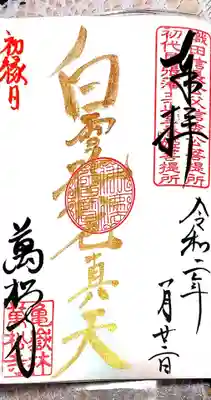 奉拝
織田信長公父信秀公菩提所
初代尾張藩主
菩提所
令和二年
月廿二日
白雪吒枳真天
初縁日
萬松寺
亀嶽林
萬松寺